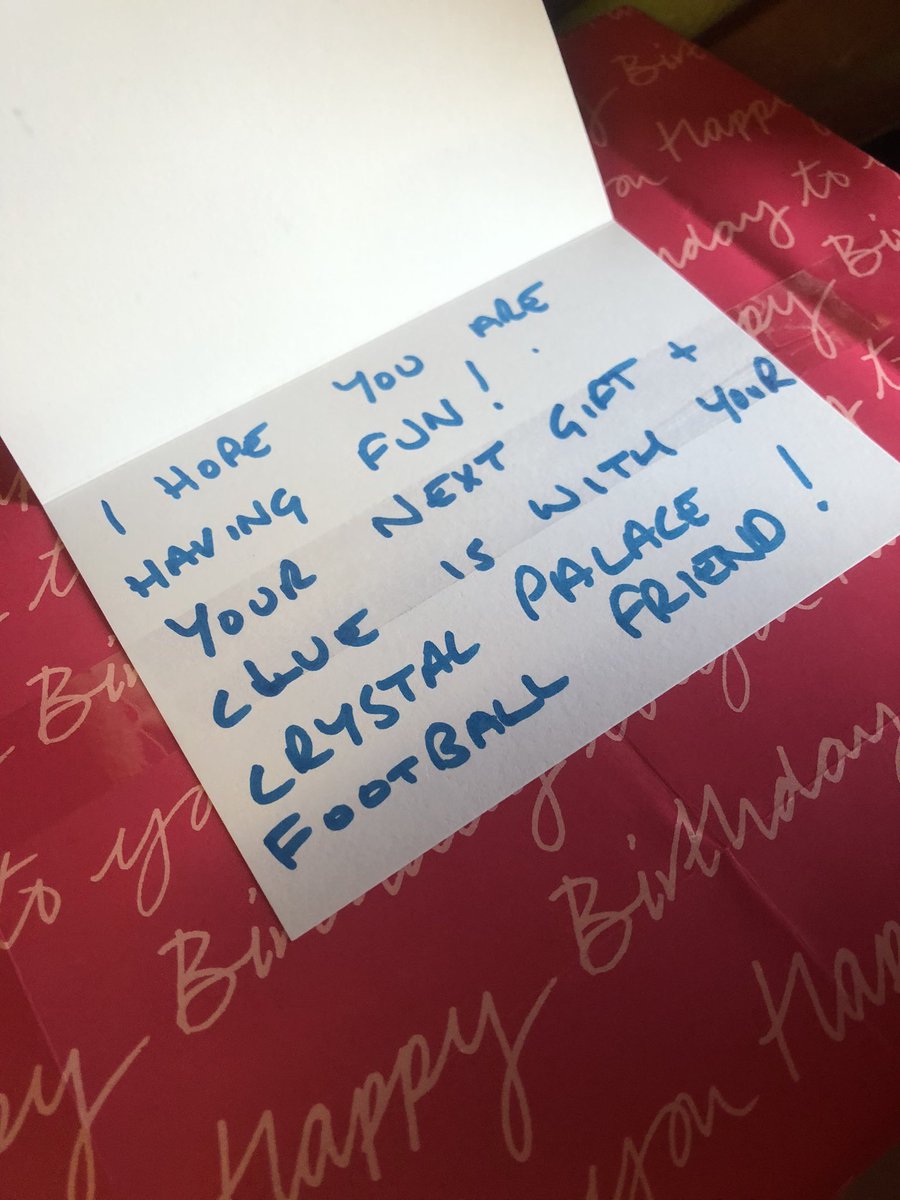 I HOPE YOU ARE
HAVING FUN!
YOUR NEXT GIFT +
CLUE IS WITH YOUR
CRYSTAL PALACE
FOOTBALL FRIEND!
Birthday to
you Happy
Birthday to
Happy
Birthday
to you
Happy Birthday
Happy
you